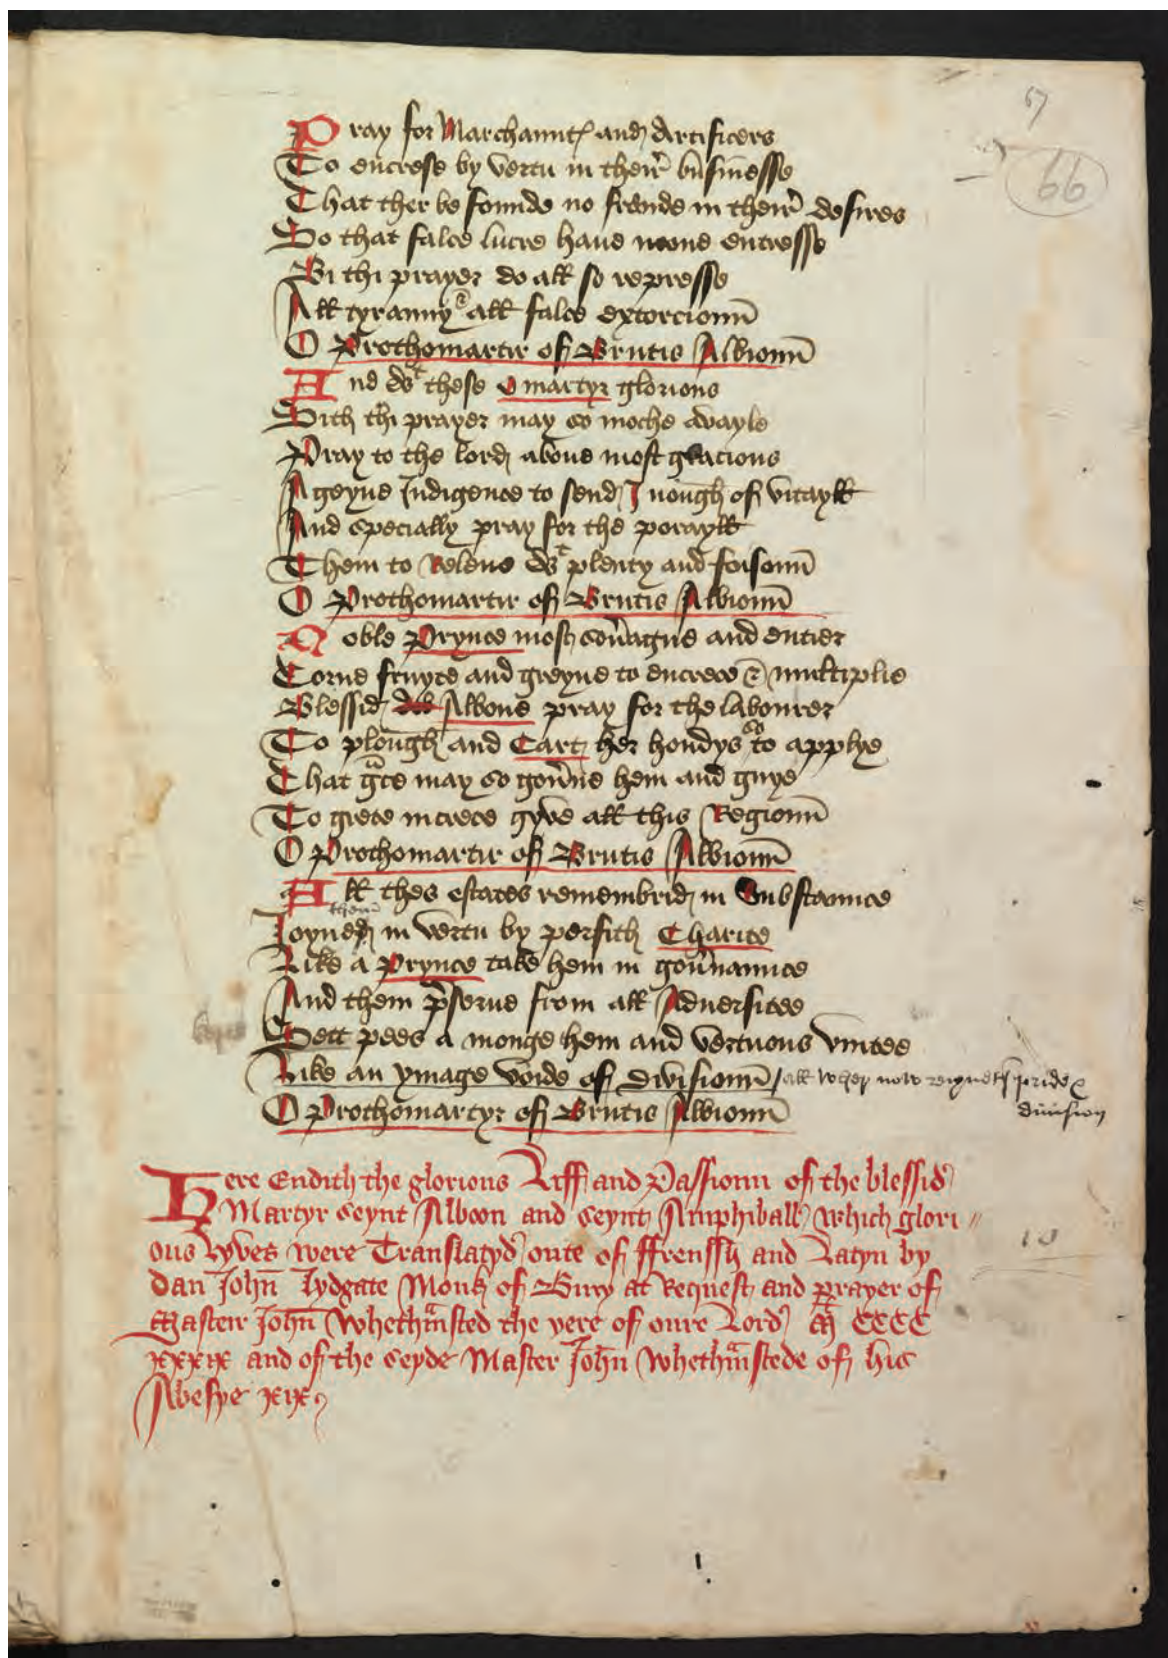 67
66
Pray for Marchauntes and Artificers
To encrese by vertu in their businesse
That ther be founde no fraude in their desires
So that false lucre haue noone entresse
Bi thi prayer do all so represse
All tyranny & all false extorcioun
O Prothomartir of Brutis Albioun
And wt these O martyr glorious
Sith thi prayer may so moche avayle
Pray to the lord aboue most gracious
Ageyne Indigence to send I nough of vitayll
And specially pray for the porayll
Them to Releue wt plenty and foisoun
O Prothomartir of Brutis Albioun
Noble Prynce most souayne and entier
Corne fruyte and greyne to encrece & multiplie
Blessid Albone pray for the labourer
To plough and Cart her hondys so to applye
That gce may so goune hem and guye
To grete increce gyve all this Regioun
O Prothomartir of Brutis Albioun
All thes estates remembrid in Substaunce
Joyned them in vertu by perfith Charite
Like a Prynce take hem in gounaunce
And them pserue from all Aduersitee
Sett pees a monge hem and vertuous vnitee
Like an ymage voide of divisioun / all wher now reigneth pride &
division
O Prothomartyr of Brutis Albioun
Here Endith the glorious Liff and Passioun of the blessid
Martyr Seynt Alboon and Seynt Amphiball which glori//
ous Lyves were Translatyd oute of ffrenssh and Latyn by
dan John Lydgate Monk of Bury at Request and prayer of
Master John Whethamsted the yere of oure Lord M CCCC
xxxix and of the seyde Master John Whethamstede of his
Abesye xix
10